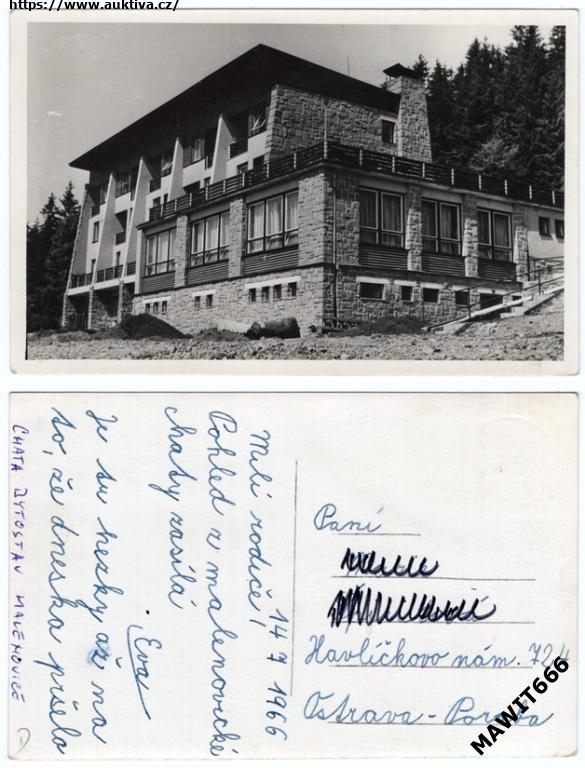 https://www.auktiva.cz/
14 7 1966
Milí rodiče!
Pohled z malenovické
chaty zasílá
Eva
Je tu hezky až na
to, že dneska pršelo
CHATA BYTOSTAV MALENOVICE
Paní
Havlíčkovo nám. 724
Ostrava-Poruba
MAWIT666